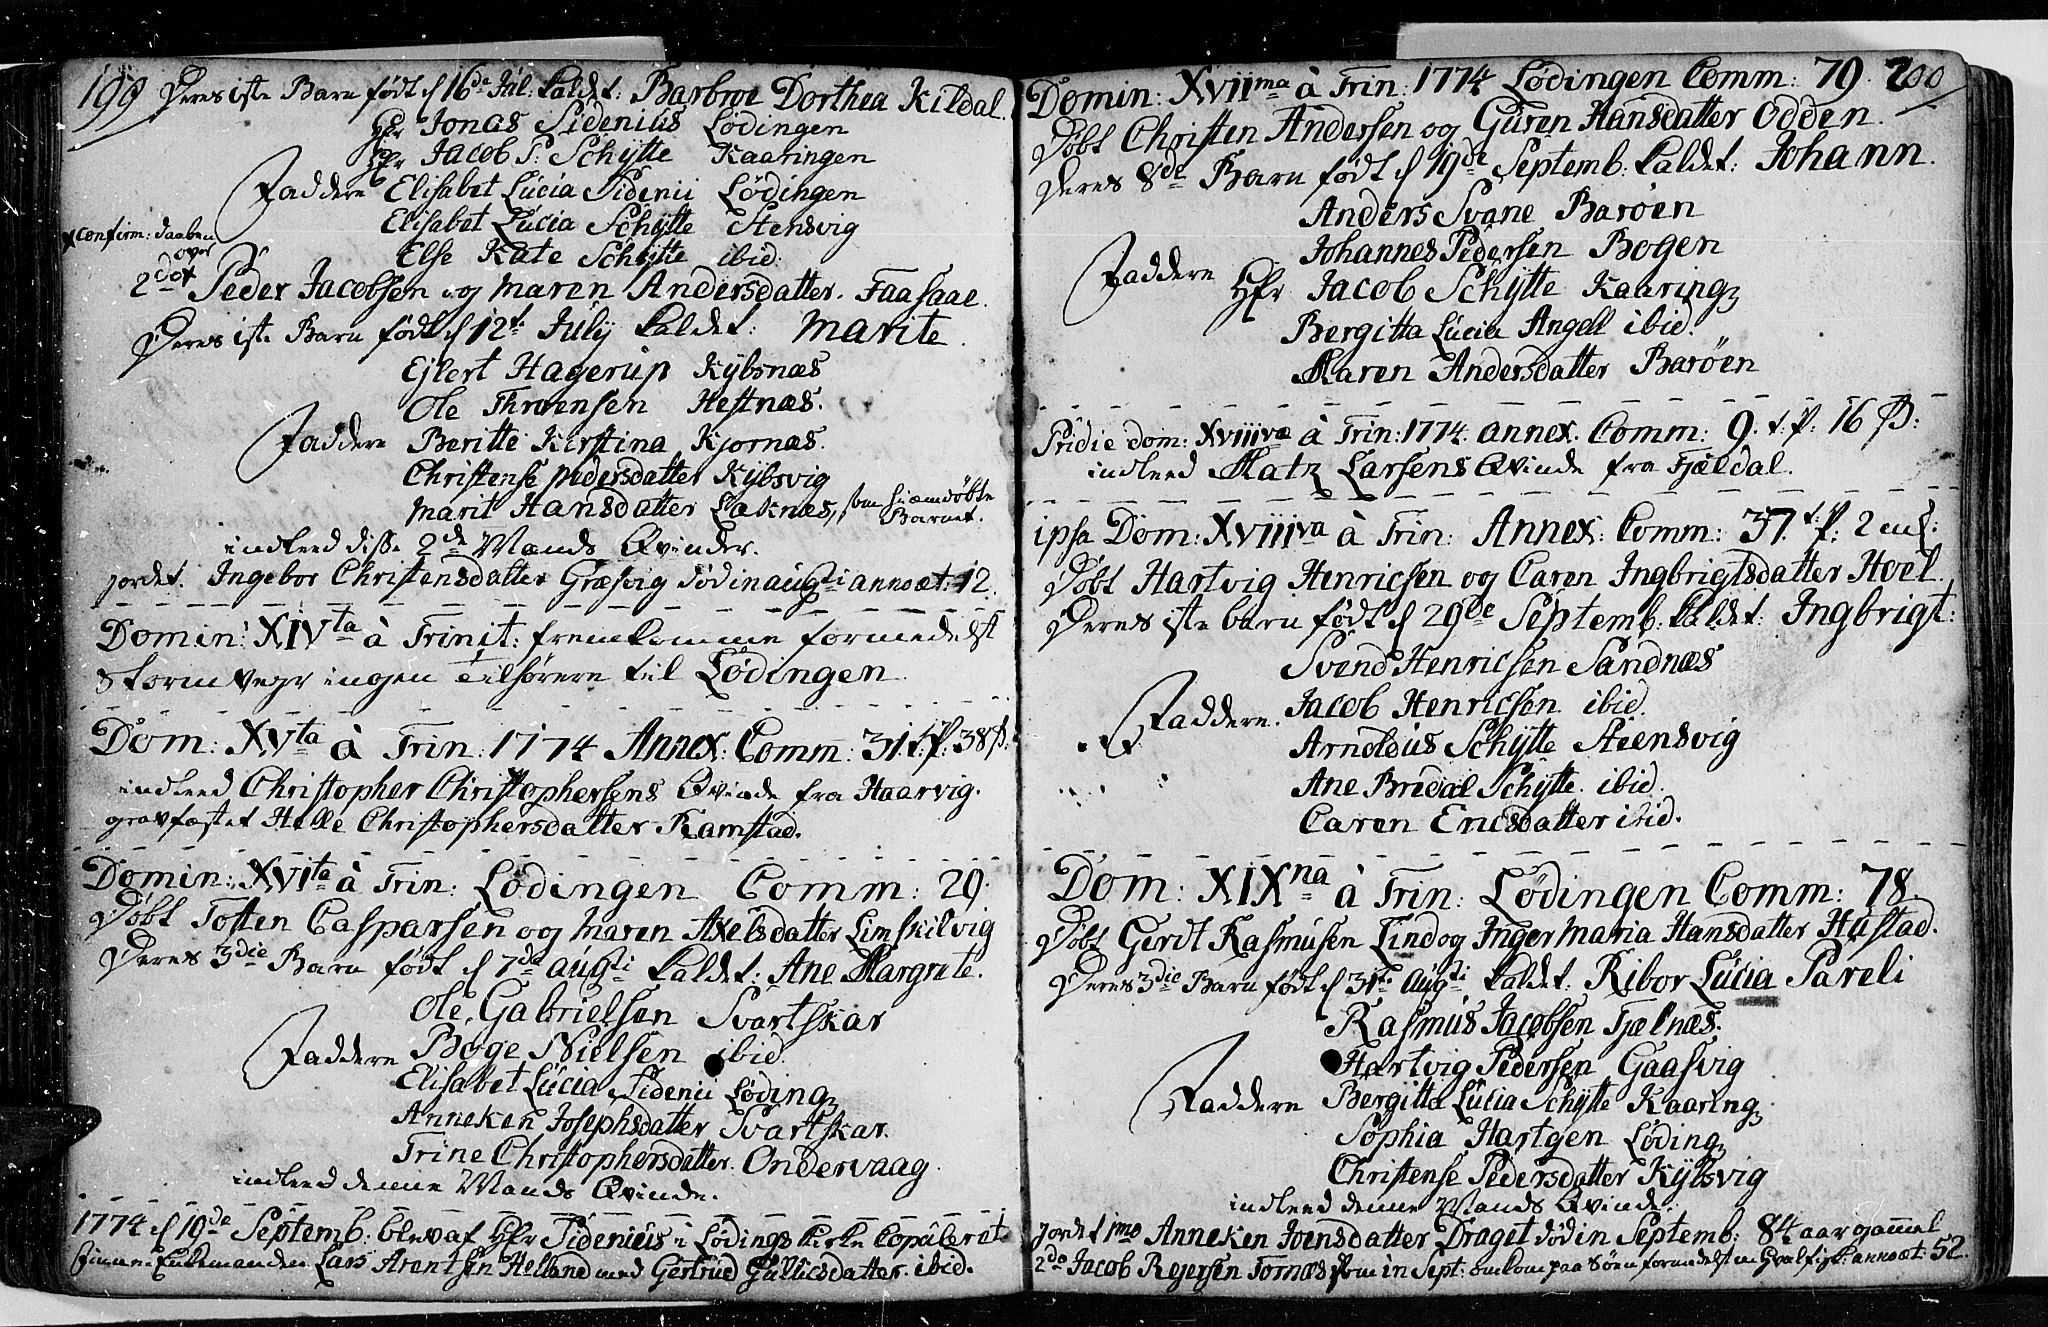 199 Deres 1ste Barn født d 16de Jul: kaldet: Barbroe Dorthea Kildal.
Hr Jonas Sidenius Lødingen
Hr Jacob P: Schÿtte Kaaringen
Faddere Elisabet Lucia Sidenii Lødingen
Elisabet Lucia Schÿtte Stensvig
Else Kate Schÿtte ibid.
x confirm: Daaben
over
2do x Peder Jacobsen og Maren Andersdatter. Faasaae.
Deres 1ste Barn født d 12t July kaldet: Marite.
Ejlert Hagerup Kÿbsnæs
Ole Thronsen Hestnæs.
Faddere Beritte Kirstina Kjornæs.
Christense pedersdatter Kÿbsvig
Marit Hansdatter Laknæs, som hiemdøbte
Barnet.
indleed disse 2de Mænds Qvinder.
Jordet. Ingebor Christensdatter Græsvig død in augsti anno æt: 12.
Domin: XIVta à Trinit: fremkomme formedelst
Storm vejr ingen Tilhørere til Lødingen.
Dom: XVta à Trin: 1774 Annex: Comm: 31 t: p: 38 ß:
indleed Christopher Christophersens Qvinde fra Haarvig.
gravfæstet Helle Christophersdatter Ramstad.
Domin: XVIta à Trin: Lødingen Comm: 29.
Døbt Tosten Casparsen og Maren Axelsdatter Limskilvig
Deres 3die Barn født d 7de augsti kaldet: Ane Margrete.
Ole Gabrielsen Svartskar
Faddere Boge Nielsen ibid.
Elisabet Lucia Sidenii Løding
Anneken Josephsdatter Svartskar.
Trine Christophersdatter. Ondervaag.
indleed denne Mands Qvinde.
1774 d 19de Septemb: blev af Hr Sidenius i Lødings kirke Copuleret
Enkemanden Lars Arentsen Helland med Gertrud Gullicsdatter. ibid.
Domin: XVIIma à Trin: 1774 Lødingen Comm: 79. 200
Døbt Christen Andersen og Guren Hansdatter Odden.
Deres 8de Barn født d 19de Septemb: kaldet: Johann.
Anders Svane Barøen
Johannes Pedersen Bogen
Faddere Hr Jacob Schÿtte Kaaring
Bergitta Lucia Angell ibid.
Maren Andersdatter Barøen
Pridie dom: XVIIIvæ à Trin: 1774. annex. Comm: 9. t. p: 16 ß:
indleed Matz Larsens Qvinde fra Fjeldal.
ipsa Dom: XVIIIva à Trin: Annex: Comm: 37. t: p: 2
Døbt Hartvig Henricsen og Caren Ingbrigtsdatter Hoel.
Deres 1ste barn født d 29de Septemb: kaldet: Ingbrigt:
Svend Henricsen Sandnæs
Faddere. Jacob Henricsen ibid.
Arnoldus Schÿtte Steensvig
Ane Bredal Schÿtte. ibid.
Caren Ericsdatter ibid.
Dom: XIXna à Trin: Lødingen Comm: 78
Døbt Gerdt Rasmusen Lind og Inger Maria Hansdatter Hustad.
Deres 3die Barn født d 31te augsti kaldet. Ribor Lucia Pareli
Rasmus Jacobsen Fjælnæs.
Hartvig Pedersen Gaasvig
Faddere Bergitta Lucia Schÿtte Kaaring
Sophia Hartgen Løding
Christense Pedersdatter Kÿbsvig
indleed denne Mands Qvinde.
Jordet 1mo Anneken Joensdatter Draget død in Septemb: 84 aar gammel
2do Jacob Rejersen Tornæs som in Sept: omkom paa Søen formedelst en Hvalfisk: anno æt: 52.